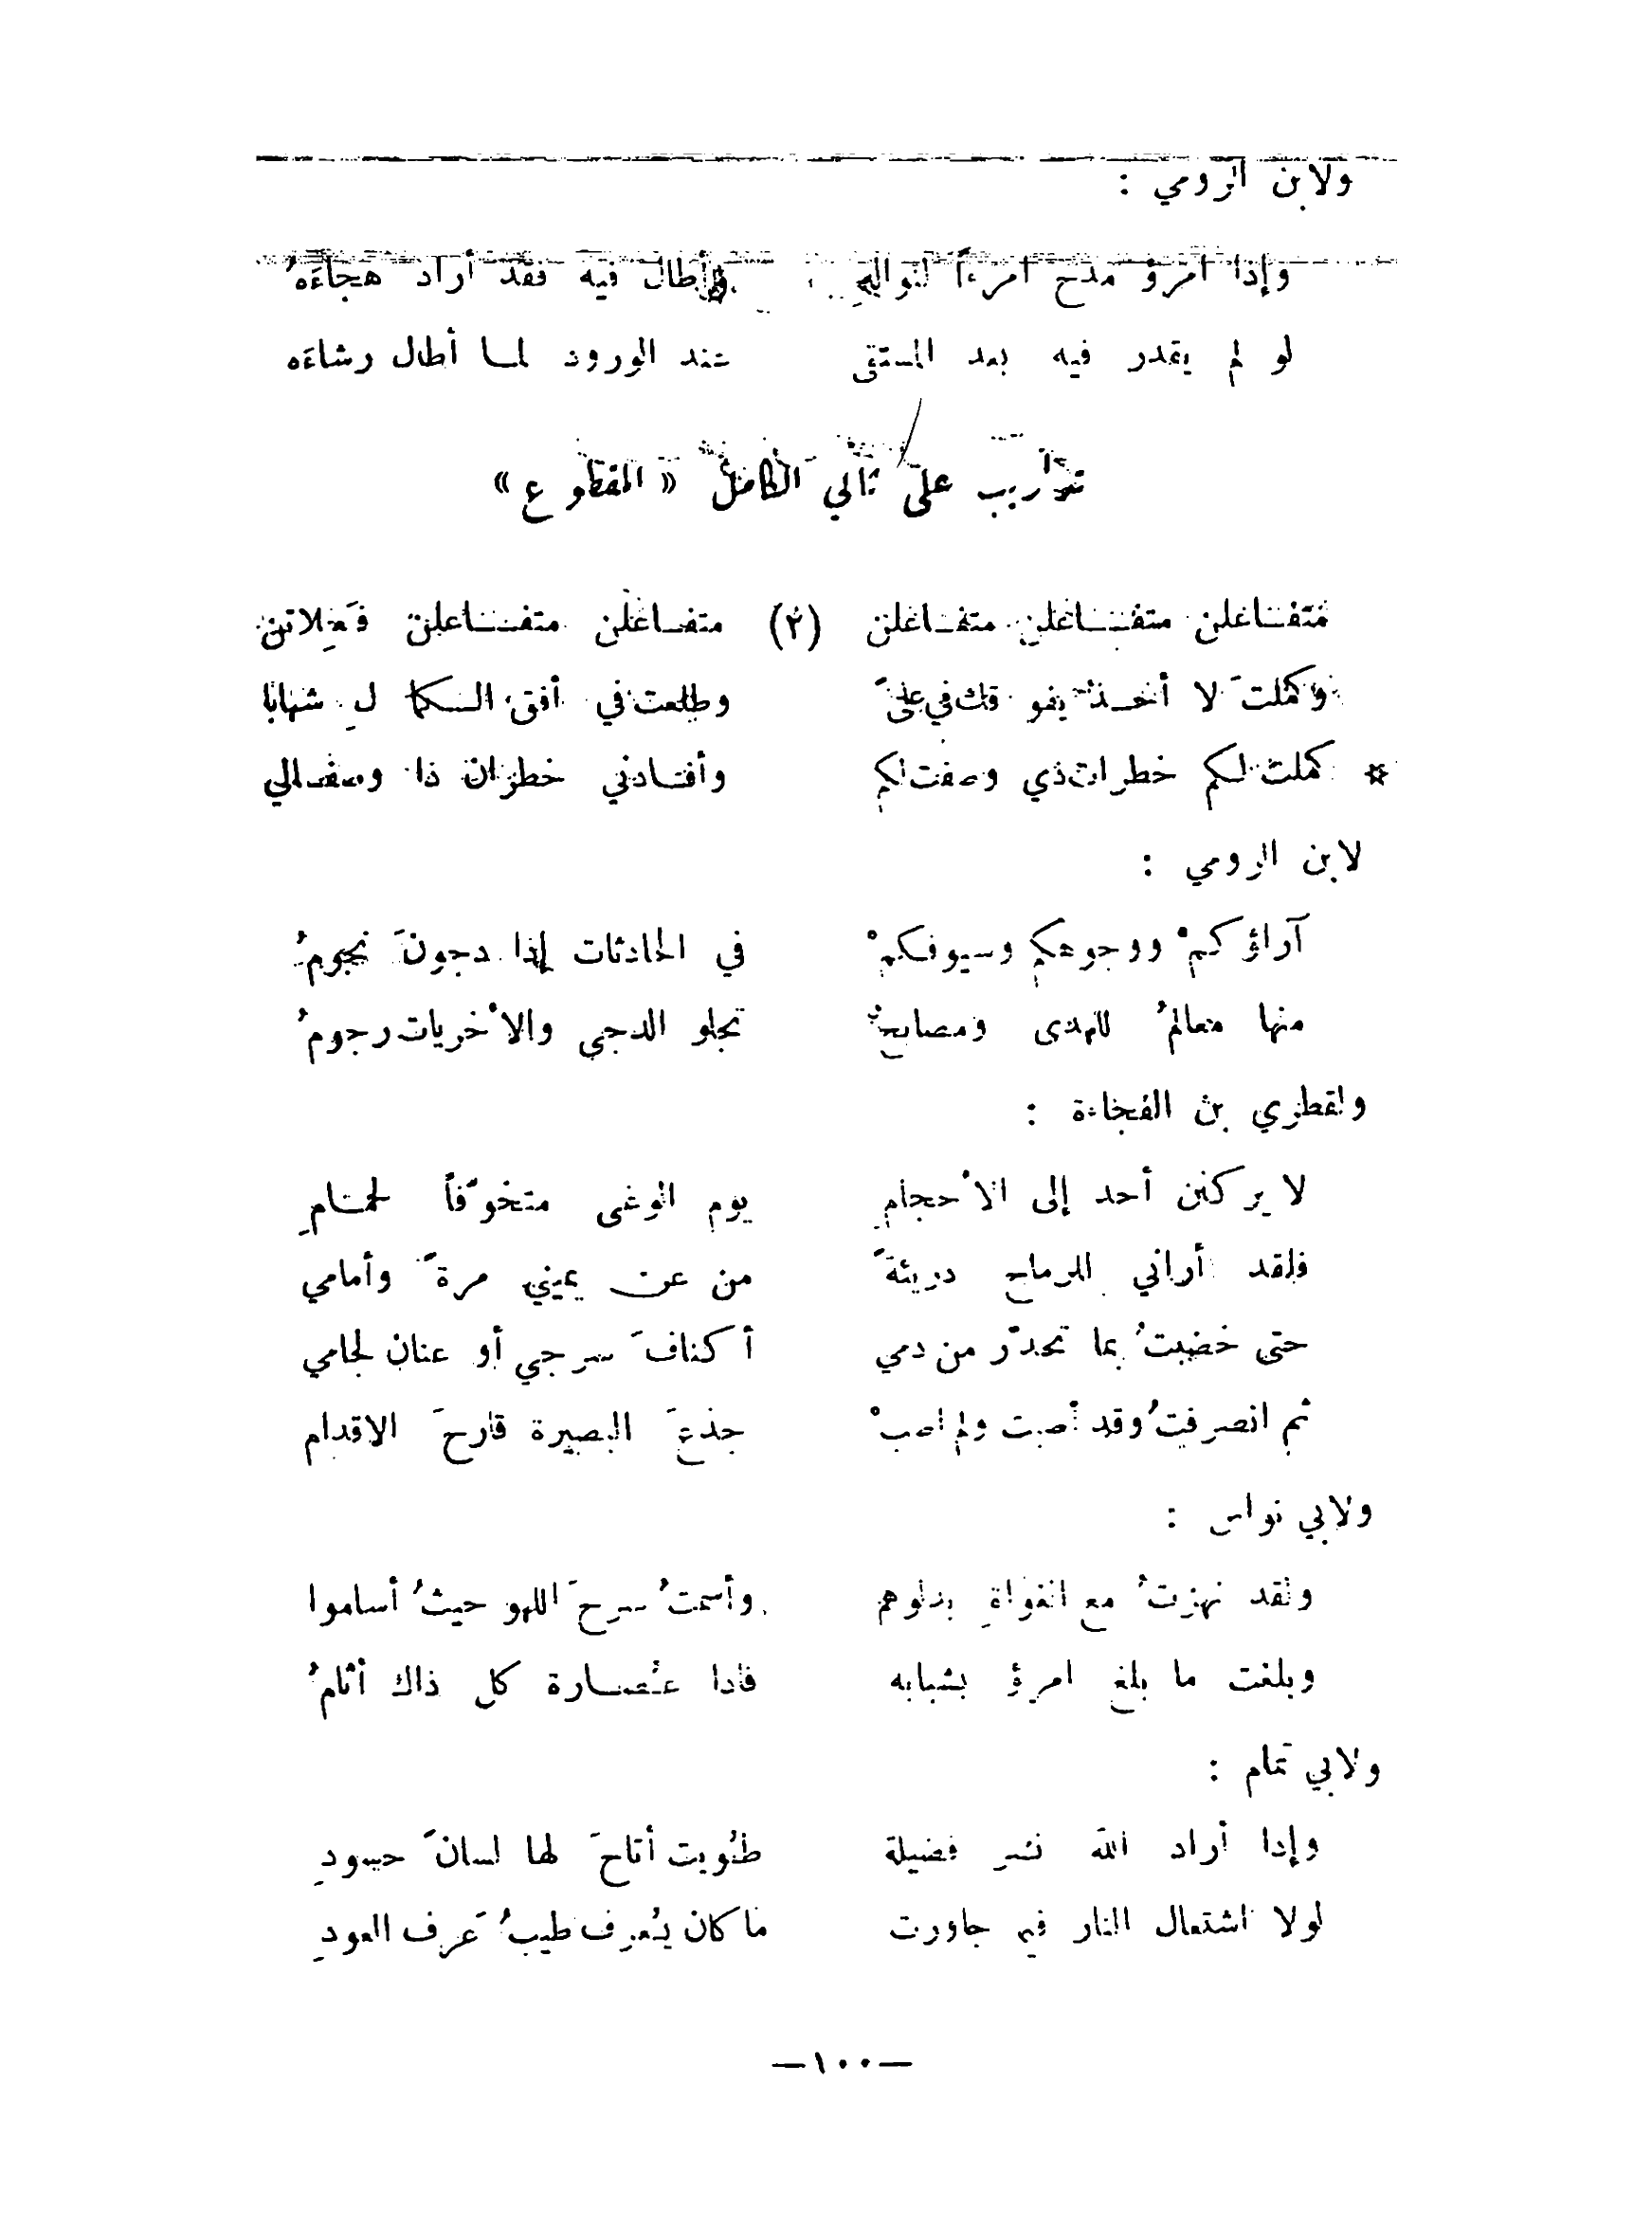 ولابن الرومي :
وإذا امرؤ مدح امرءاً لنواله وأطال فيه فقد أراد هجاءَهُ
لو لم يقدر فيه بعد المستقى عند الورود لما أطال رشاءَه
تداريب على ثاني الكامل « المقطوع »
متفاعلن متفاعلن متفاعلن (٢) متفاعلن متفاعلن فَعِلاتن
وكملتَ لا أحد يفو قك في علىً وطلعت في أفق الكما لِ شهابا
* كملت لكم خطرات ذي وصفت لكم وأفادني خطران ذا وصفا لي
لابن الرومي :
آراؤكمْ ووجوهكم وسيوفكمْ في الحادثات إذا دجونَ نجومُ
منها معالمُ للهدى ومصابحٌ تجلو الدجى والأخريات رجومُ
ولقطري بن الفجاءة :
لا يركنن أحد إلى الأحجامِ يوم الوغى متخوّفاً لحمامِ
فلقد أراني للرماح دريئةً من عن يميني مرةً وأمامي
حتى خضبتُ بما تحدّر من دمي أكنافَ سرجي أو عنان لجامي
ثم انصرفتُ وقد أصبت ولم اصبْ جذعَ البصيرة قارحَ الاقدام
ولابي نواس :
ولقد نهزتُ مع الغواةِ بدلوهم وأسمتُ سرحَ اللهو حيثُ أساموا
وبلغت ما بلغ امرؤ بشبابه فاذا عُصارة كل ذاك أثامُ
ولابي تمام :
وإذا أراد الله نشر فضيلة طُويت أتاحَ لها لسانَ حسودِ
لولا اشتعال النار فيم جاورت ما كان يُعرف طيبُ عَرف العودِ
—١٠٠—